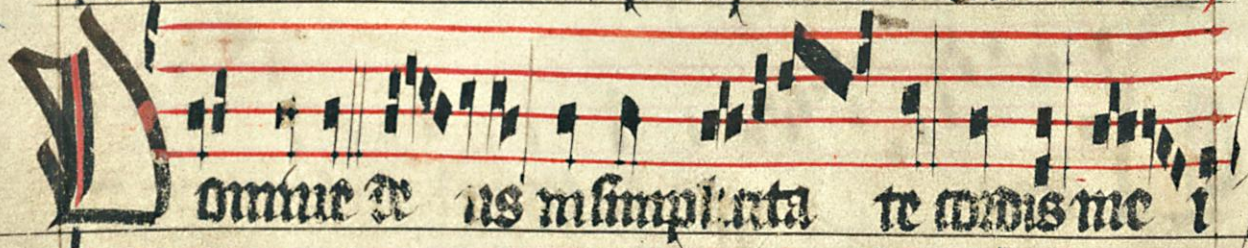 Domine de us in simplicita te cordis me i